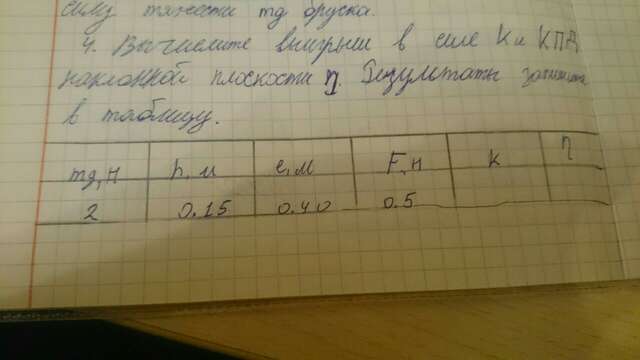 силу тяжести mg бруска.
4. Вычислите выигрыш в силе K и КПД
наклонной плоскости η. Результаты запишите
в таблицу.
mg, Н h, м e, м F, Н K η
2 0.15 0.40 0.5